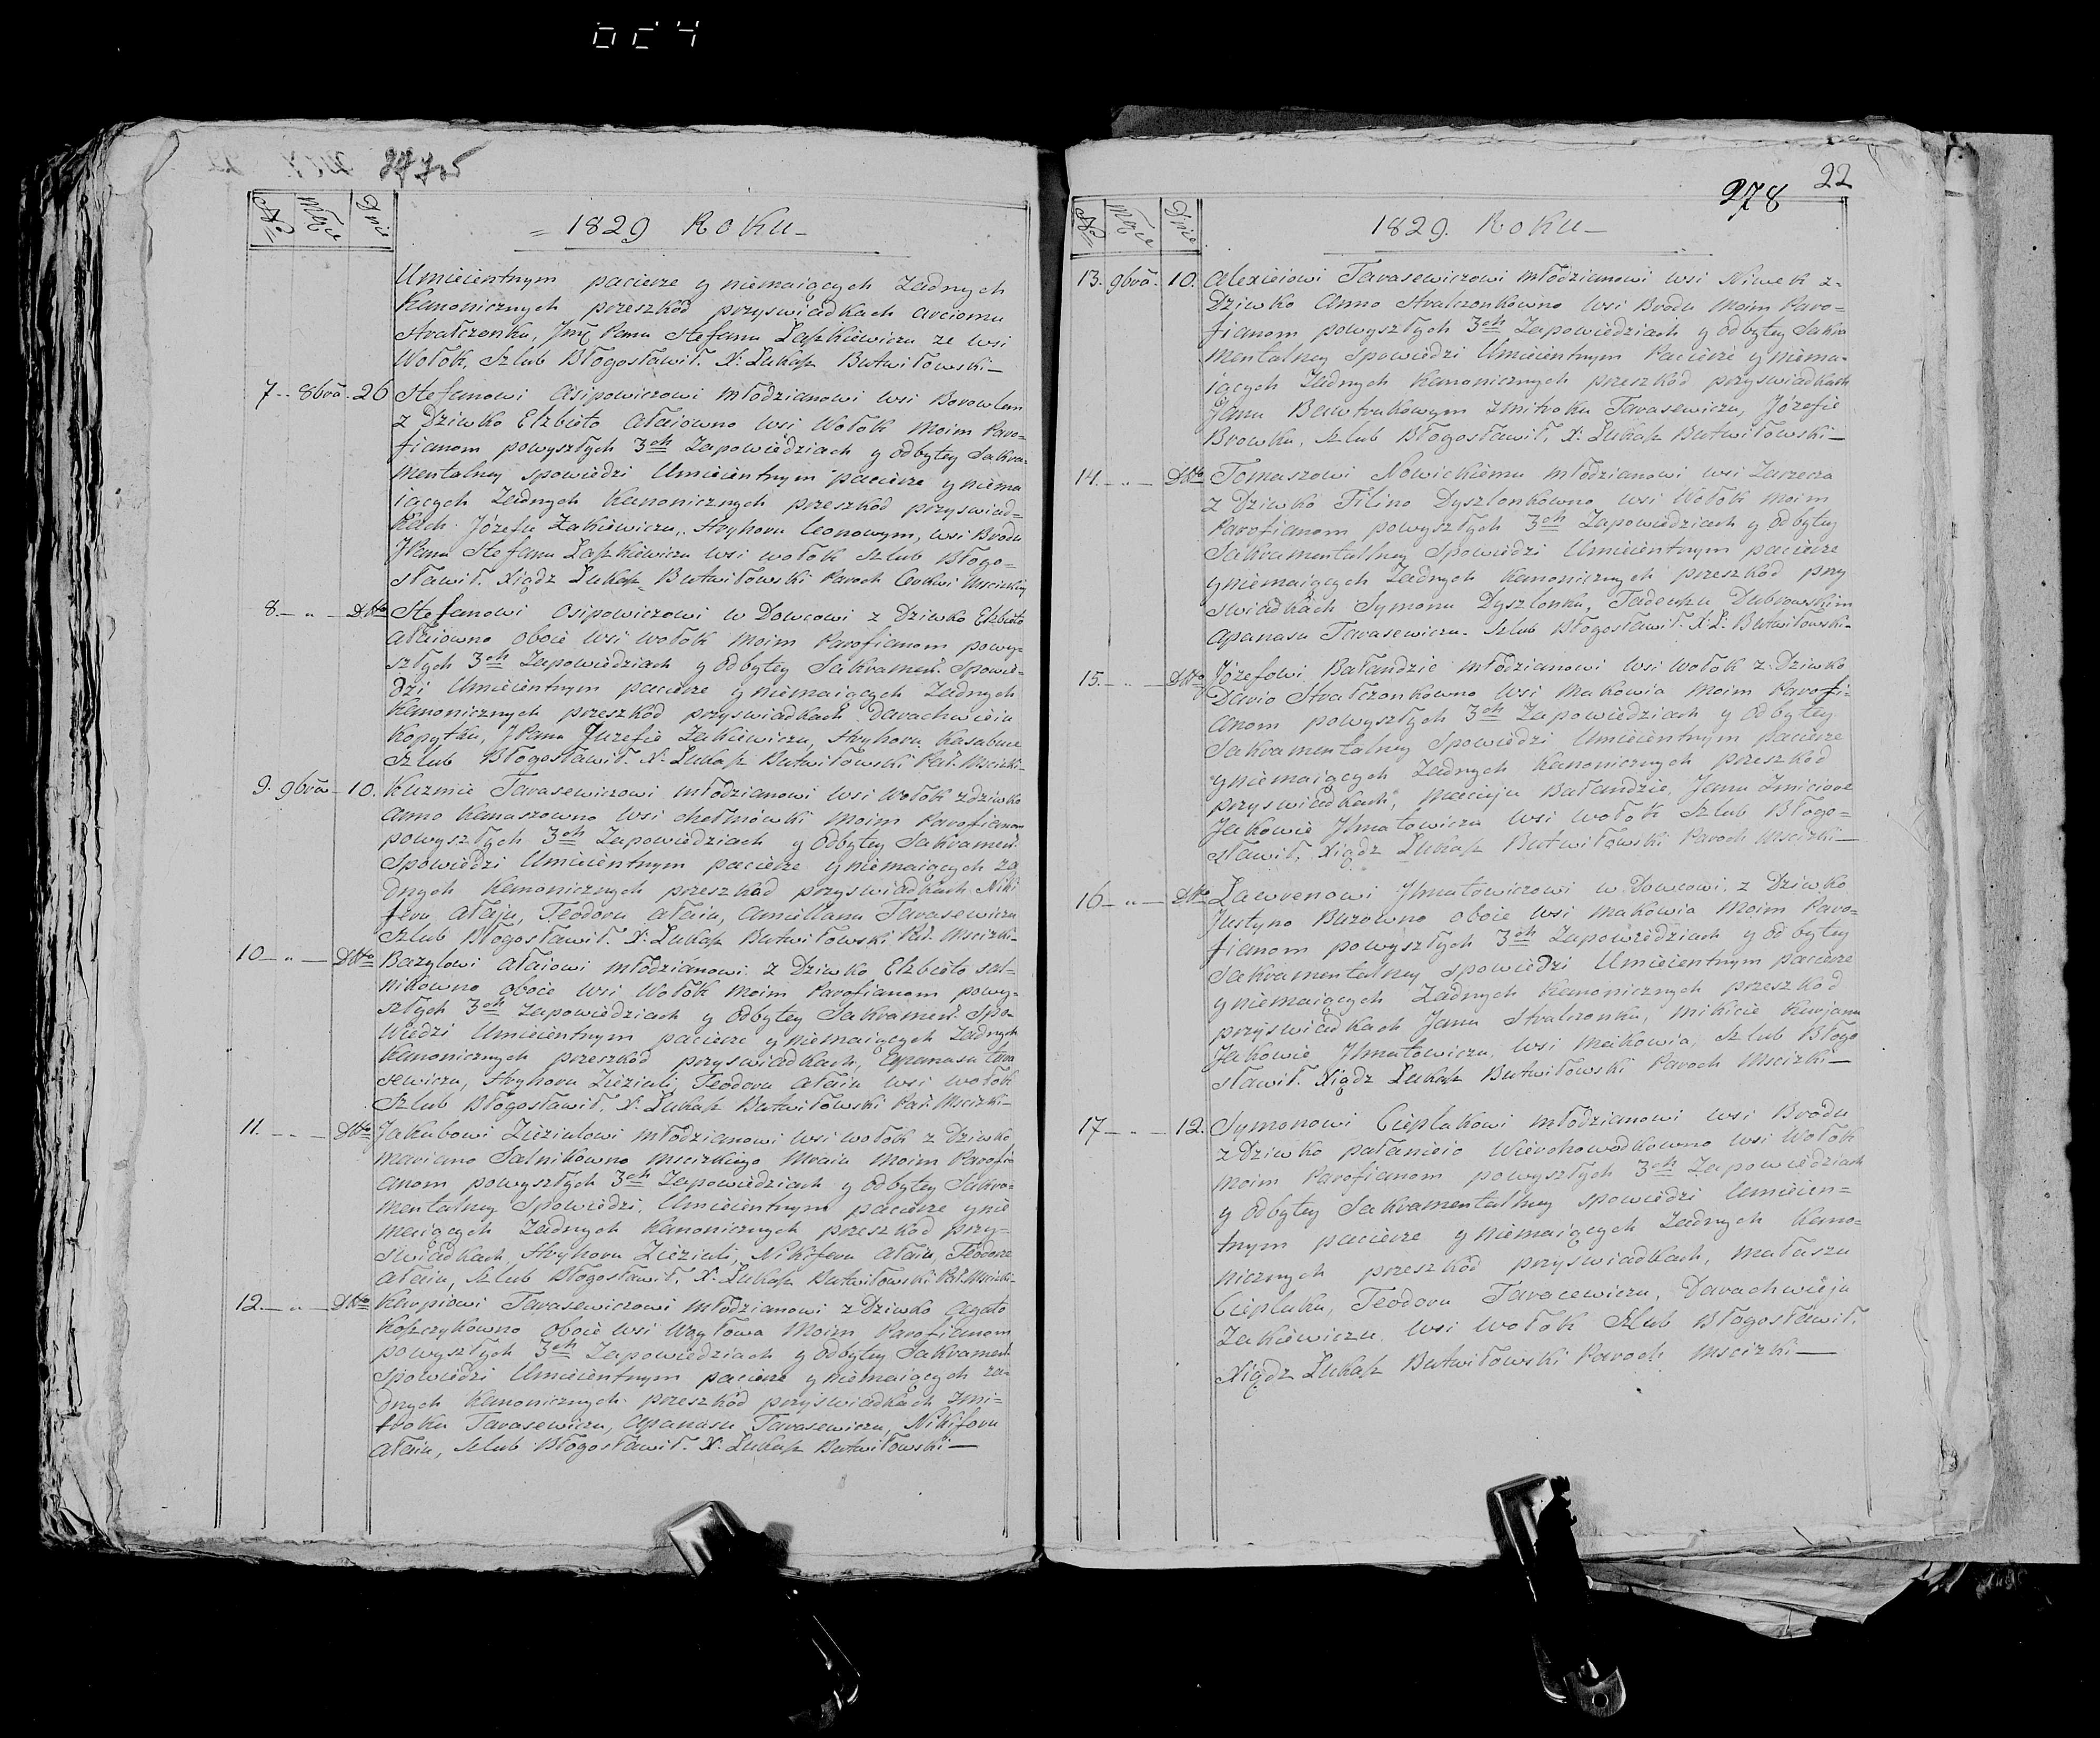 № Mące Dnie
= 1829 Roku –
Umieientnym pacierze y niemaiących Żadnych
Kanonicznych przeszkod przyswiadkach arciomu
Stralczonku, Jmć Panu Stefanu Laszkiewiczu ze wsi
Wołok, Szlub Błogosławił. X: Łukasz Butwiłowski –
7 – 8bra. 26 Stefanowi Osipowiczowi Młodzianowi wsi Borowlan
z Dziwko Elzbieto Ałaiowno wsi Wołok Moim Paro-
fianom powyszłych 3ch Zapowiedziach y odbytey Sakra-
mentalney spowiedzi Umieientnym pacierze y niema
iących Żadnych Kanonicznych przeszkod przyswiad-
kach Józefu Zakiewiczu, Hryhoru Leonowym, wsi Brodu
JPanu Stefanu Laszkiewiczu wsi wołok Szlub Błogo-
sławił. Xiądz Łukasz Butwiłowski Paroch Cerkwi Mscizkiey
8. – „ – Dtto Stefanowi Osipowiczowi w Dowcowi z Dziwko Elzbieto
Ałaiowno oboie wsi wołok Moim Parofianom powy-
szłych 3ch Zapowiedziach y odbytey Sakramen: Spowie-
dzi Umieientnym pacierze y niemaiących Żadnych
Kanonicznych przeszkod przyswiadkach Darachwieiu
Kopytku, JPanu Juzefie Zakiewiczu, Hryhoru Kasabuce
Szlub Błogosławił. X: Łukasz Butwiłowski Par: Mscizki –
9. 9bra – 10. Kuzmie Tarasewiczowi Młodzianowi wsi Wołok z dziwko
Anno Kanaszowno wsi Chełmówki Moim Parofianom
powyszłych 3ch Zapowiedziach y odbytey Sakramen:
Spowiedzi Umieientnym pacierze y niemaiących Ża
dnych Kanonicznych przeszkod przyswiadkach Niki
feru Ałaju, Teodoru Ałaiu, Amillanu Tarasewiczu
Szlub Błogosławił. X: Łukasz Butwiłowski Par. Mscizki –
10 – „ – Dtto Bazylowi Ałaiowi Młodzianowi z Dziwko Elzbieto Sal-
nikowno oboie wsi Wołok Moim Parofianom powy-
szłych 3ch Zapowiedziach y odbytey Sakramen: Spo-
wiedzi Umieientnym pacierze y niemaiących Żadnych
Kanonicznych przeszkod przyswiadkach, Apanasu Tara
sewiczu, Hryhoru Zieziuli, Teodoru Ałaiu wsi wołok
Szlub Błogosławił. X: Łukasz Butwiłowski Par: Mscizki –
11. – „ – Dtto Jakubowi Zieziulowi Młodzianowi wsi wołok z Dziwko
Marianno Salnikowno Mscizkiego Mraiu Moim Parofi-
anom powyszłych 3ch Zapowiedziach y odbytey Sakra-
mentalney Spowiedzi, Umieientnym pacierze y nie
maiących Żadnych Kanonicznych przeszkod przy-
swiadkach, Hryhoru Zieziuli, Nikiferu Ałaiu, Teodore
Ałaiu, Szlub Błogosławił, X: Łukasz Butwiłowski Par. Mscizki –
12 – „ – Dtto Karpiowi Tarasewiczowi Młodzianowi z Dziwko Agato
Koszczykowno oboie wsi Woytowa Moim Parofianom
powyszłych 3ch Zapowiedziach y odbytey Sakramen:
Spowiedzi Umieientnym pacierze y niemaiących za-
dnych Kanonicznych przeszkod przyswiadkach Zmi-
troku Tarasewiczu, Apanasu Tarasewiczu, Nikiforu
Ałaiu, Szlub Błogosławił. X: Łukasz Butwiłowski –
22
278
№ Mące Dnie
1829. Roku –
13. 9bra. 10. Alexieiowi Tarasewiczowi Młodzianowi wsi Niwek z-
Dziwko Anno Stralczonkowno wsi Brodu Moim Paro-
fianom powyszłych 3ch Zapowiedziach y odbytey Sakra
mentalney Spowiedzi Umieientnym Pacierze y niema-
iących Żadnych Kanonicznych przeszkod przyswiadkach
Janu Bawtrukowym Zmitroku Tarasewiczu, Józefie
Browku, Szlub Błogosławił, X: Łukasz Butwiłowski –
14. – „ – Dtto Tomaszowi Nowickiemu Młodzianowi wsi Zarzecza
z Dziwko Filino Dyszlonkowno wsi Wołok Moim
Parofianom powyszłych 3ch Zapowiedziach y odbytey
Sakramentalney Spowiedzi Umieientnym pacierze
y niemaiących Żadnych Kanonicznych przeszkod przy
swiadkach Symonu Dyszlonku, Tadeuszu Dubrowskim
Apanasu Tarasewiczu. Szlub Błogosławił X: Ł: Butwiłowski –
15. – „ – Dtto Józefowi Bałandzie Młodzianowi wsi wołok z Dziwko
Dario Stralczonkowno wsi Makowia Moim Parofi-
anom powyszłych 3ch Zapowiedziach y odbytey
Sakramentalney Spowiedzi Umieientnym pacierze
y niemaiących Żadnych Kanonicznych przeszkod
przyswiadkach, Macieju Bałandzie, Janu
Jakowie Jhnatowiczu wsi wołok Szlub Błogo-
sławił, Xiądz Łukasz Butwiłowski Paroch Mscizki –
16 – „ – Dtto Ławrenowi Jhnatowiczowi w Dowcowi, z Dziwko
Justyno Buzowno oboie wsi Makowia Moim Paro-
fianom powyszłych 3ch Zapowiedziach y odbytey
Sakramentalney spowiedzi Umieientnym pacierze
y niemaiących Żadnych Kanonicznych przeszkod
przyswiadkach Janu Stralczonku, Mikicie Kurjanu
Jakowie Jhnatowiczu, wsi Makowia, Szlub Błogo
sławił. Xiądz Łukasz Butwiłowski Paroch Mscizki –
17 – „ – 12. Symonowi Cieplakowi Młodzianowi wsi Brodu
z Dziwko Pałanieio Wierchowodkowno wsi Wołok
Moim Parofianom powyszłych 3ch Zapowiedziach
y odbytey Sakramentalney spowiedzi Umieien-
tnym pacierze y niemaiących Żadnych Kano-
nicznych przeszkod przyswiadkach, Matuszu
Cieplaku, Teodoru Taracewiczu, Darachwieju
Zakiewiczu wsi wołok Szlub Błogosławił.
Xiądz Łukasz Butwiłowski Paroch Mscizki –